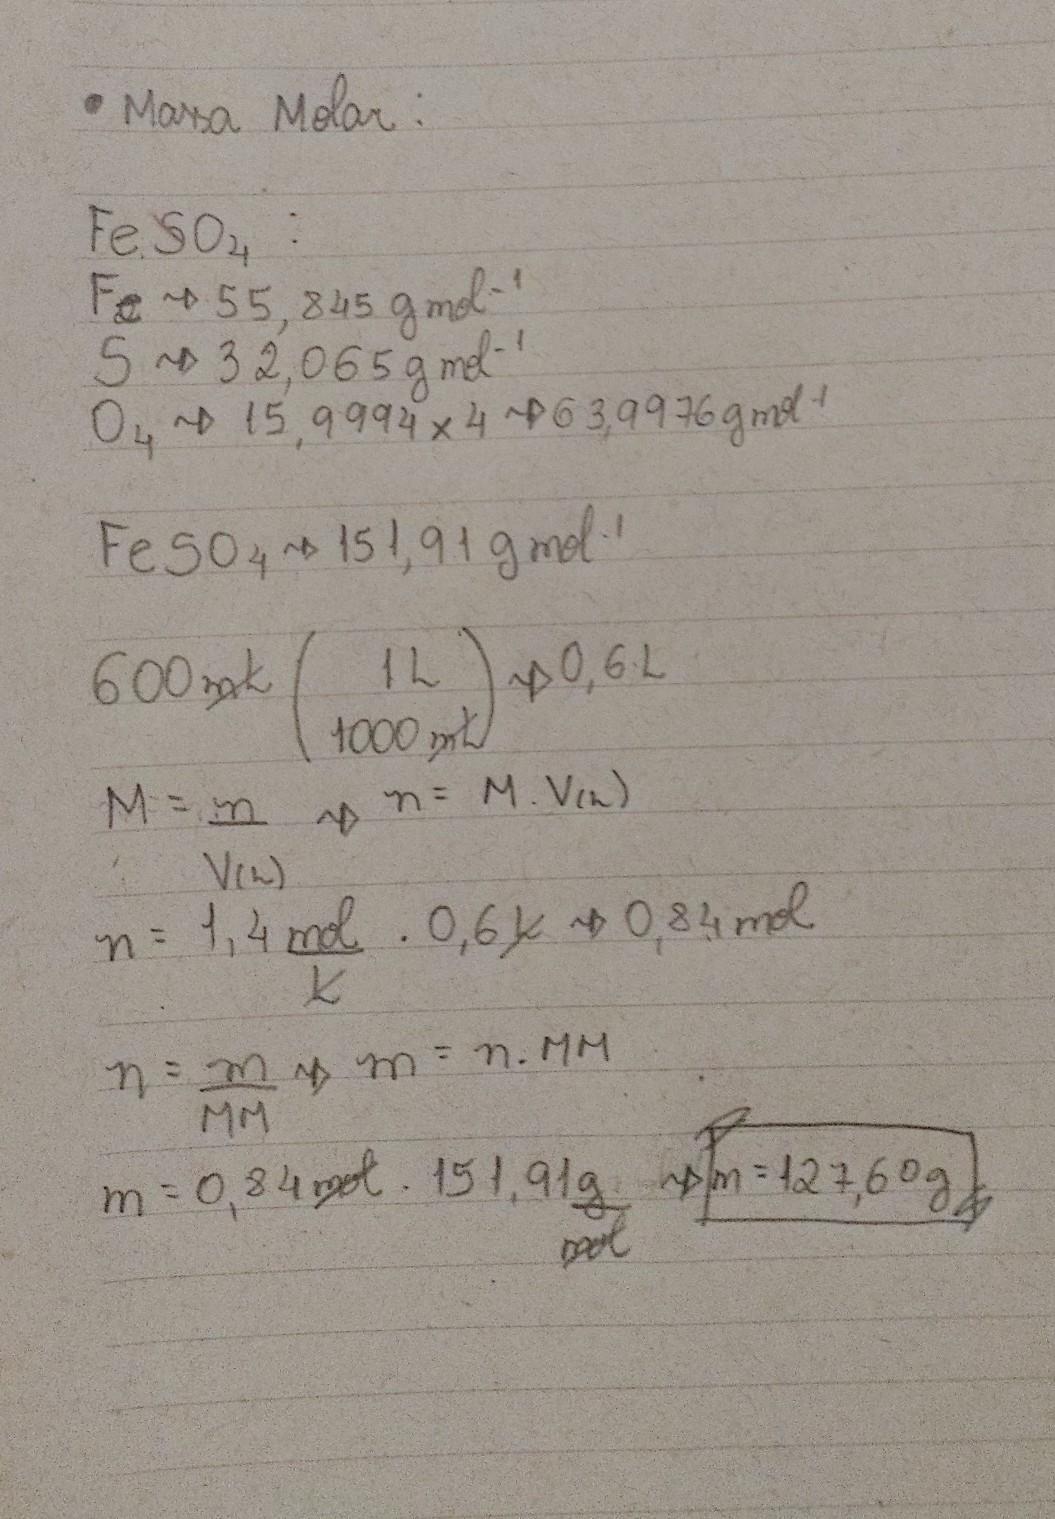 • Massa Molar:
FeSO₄ :
Fe → 55,845 g mol⁻¹
S → 32,065 g mol⁻¹
O₄ → 15,9994 x 4 → 63,9976 g mol⁻¹
FeSO₄ → 151,91 g mol⁻¹
600 mL ( 1L / 1000 mL ) → 0,6 L
M = n / V(L) → n = M . V(L)
n = 1,4 mol / L . 0,6 L → 0,84 mol
n = m / MM → m = n . MM
m = 0,84 mol . 151,91 g / mol → m = 127,60 g